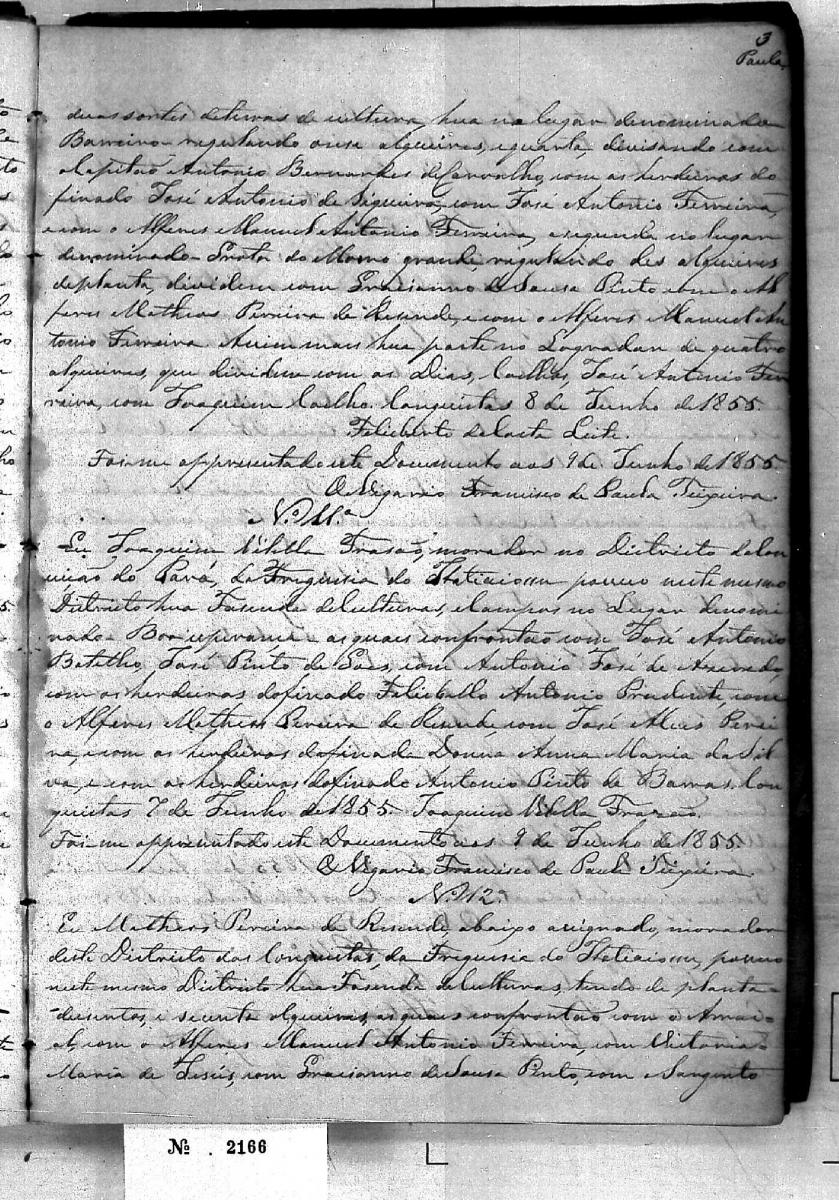 3
Paula
duas sortes de terras de cultura, hua no lugar denominado
Barreiro regulando onse alqueires, e quarta, divisando com
o Capitão Antonio Bernardes de Carvalho, com os herdeiros do
finado José Antonio de Siqueira, com José Antonio Ferreira,
e com o Alferes Manuel Antonio Ferreira, e segunda no lugar
denominado Grota do Morro grande, regulando des alqueires
de planta, dividem com Gracianno de Sousa Pinto com o Al
feres Matheos Pereira de Resende, e com o Alferes Manuel An
tonio Ferreira. Assim mais hua parte no Logradou de quatro
alqueires, que dividem com os Dias, Coelhos, José Antonio Fer
reira, com Joaquim Coelho. Conquistas 8 de Junho de 1855.
Felisberto da Costa Leite.
Foi-me appresentado este Documento aos 9 de Junho de 1855.
O Vigario Francisco de Paula Teixeira.
N.º 11.º
Eu Joaquim Villela Frasão, morador no Districto da Con
ceição do Pará, da Freguesia do Itatiaiossu possuo neste mesmo
Districto hua Fasenda de Culturas, e Campos no Lugar denomi
nado Boa esperança as quais confrontão com José Antonio
Botelho, José Pinto de Goes, com Antonio José de Azevedo,
com os herdeiros do finado Antonio Prudente, com
o Alferes Matheos Pereira de Resende, com José Alves Perei
ra, e com os herdeiros da finada Donna Anna Maria da Sil
va, e com os herdeiros do finado Antonio Pinto de Barros. Con
quistas 7 de Junho de 1855. Joaquim Villela Frazão.
Foi-me appresentado este Documento aos 9 de Junho de 1855.
O Vigario Francisco de Paula Teixeira.
N.º 12.º
Eu Matheos Pereira de Resende, abaixo assignado, morador
deste Districto das Conquistas, da Freguesia do Itatiaiossu, possuo
neste mesmo Districto hua Fasenda de Culturas, tendo de planta
dusentos, e secenta alqueires, as quais confrontão com o Arrai
al, com o Alferes Manuel Antonio Ferreira, com Victoria
Maria de Jesus, com Gracianno de Sousa Pinto, com o Sargento
Nº . 2166